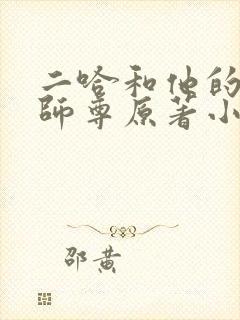 二哈和他的
師尊原著小
邵黄